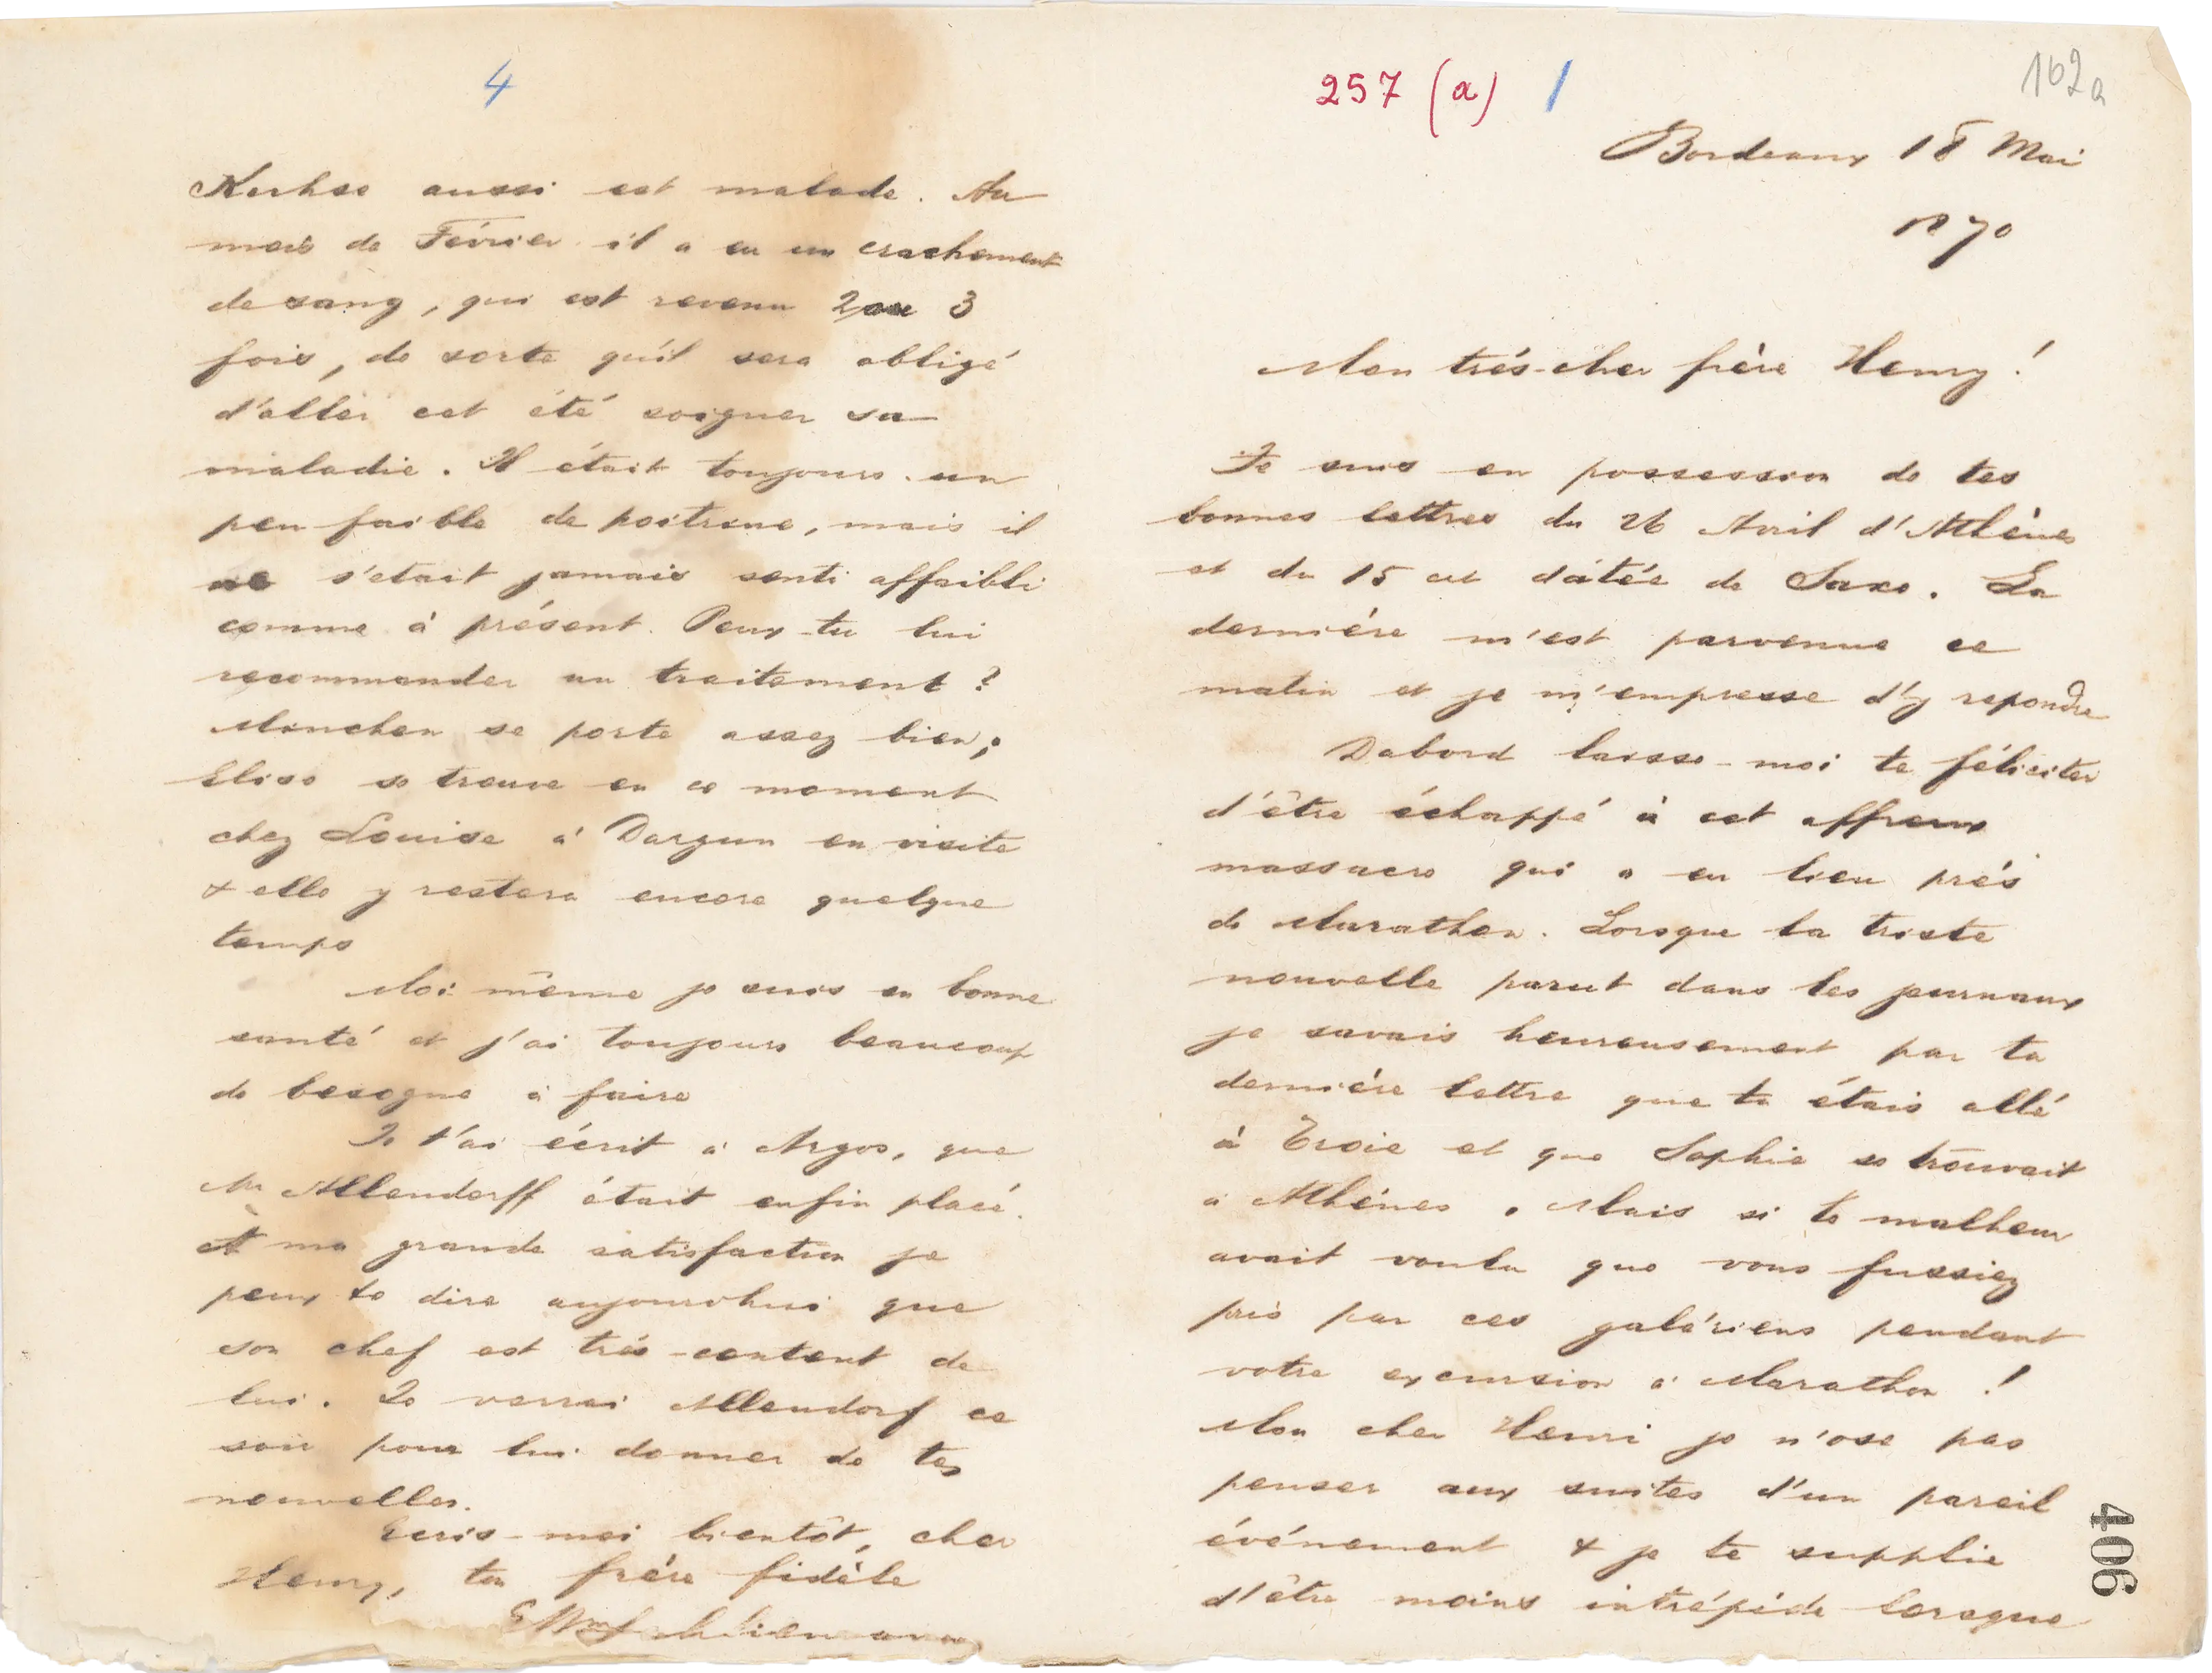 4
Kerhse aussi est malade. Au
mois de Février il a eu un crachement
de sang, qui est revenu 2 ou 3
fois, de sorte qu'il sera obligé
d'aller cet été soigner sa
maladie. Il était toujours un
peu faible de poitrine, mais il
ne s'etait jamais senti affaibli
comme à présent. Peux-tu lui
recommander un traitement?
Minchen se porte assez bien;
Elise se trouve en ce moment
chez Louise à Dargun en visite
& elle y restera encore quelque
temps
Moi même je suis en bonne
santé et j'ai toujours beaucoup
de besogne à faire
Je t'ai écrit à Argos, que
Mr Allendorff était enfin placé.
A ma grande satisfaction je
peux te dire aujourdhui que
son chef est trés-content de
lui. Je verrai Allendorf ce
soir pour lui donner de tes
nouvelles.
Ecris-moi bientôt, cher
Henry, ton frére fidèle
Schliemann
257 (a) 1
162a
Bordeaux 18 Mai
1870
Mon trés-cher frère Henry!
Je suis en possession de tes
bonnes lettres du 26 Avril d'Athènes
et du 15 ct datée de Saxe. La
derniére m'est parvenue ce
matin et je m'empresse d'y repondre
Dabord laisse-moi te féliciter
d'être échappé à cet affreux
massacre qui a eu lieu prés
de Marathon. Lorsque la triste
nouvelle parut dans les journaux
je savais heureusement par ta
derniére lettre que tu étais allé
à Troie et que Sophie se trouvait
à Athénes. Mais si le malheur
avait voulu que vous fussiez
pris par ces galériens pendant
votre excursion à Marathon!
Mon cher Henri je n'ose pas
penser aux suites d'un pareil
événement & je te supplie
d'être moins intrépide lorsque
406